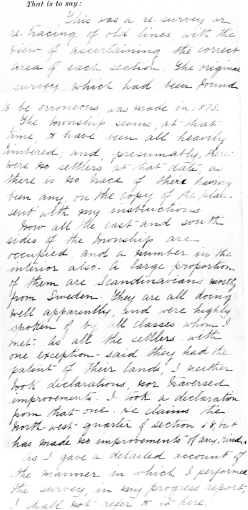 That is to say:
This was a re-survey or
re-tracing of old lines with the
view of ascertaining the correct
area of each section. The original
survey which had been found
to be erroneous was made in 1873.
The township seems, at that
time to have been all heavily
timbered, and, presumably, there
were no settlers at that date, as
there is no trace of there having
been any, on the copy of the plan
sent with my instructions
Now all the east and south
sides of the township are
occupied and a number in the
interior also. A large proportion
of them are Scandinavians mostly
from Sweden. They are all doing
well apparently, and were highly
spoken of by all classes whom I
met. As all the settlers with
one exception said they had the
patent of their lands, I neither
took declarations, nor traversed
improvements. I took a declaration
from that one. He claims the
north west quarter of section but
has made no improvements of any kind.
As I gave a detailed account of
the manner in which I performed
the survey, in my progress report,
I shall not refer to it here.